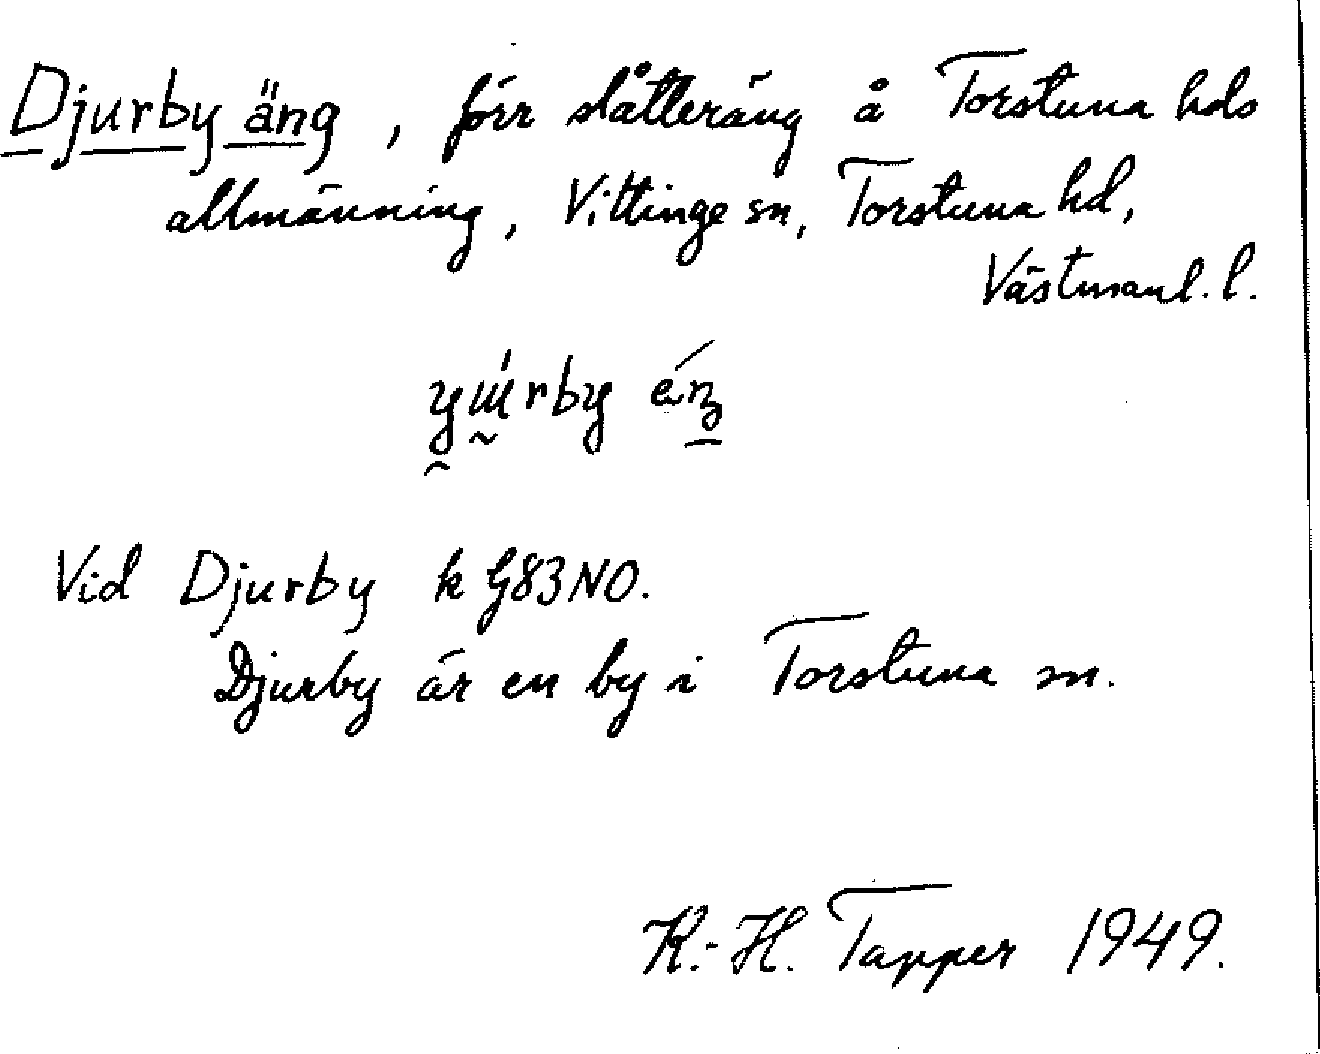 Djurby äng, förr slåtteräng å Torstuna hds
allmänning, Vittinge sn, Torstuna hd,
Västmanl. l.
Vid Djurby k G83NO.
Djurby är en by i Torstuna sn.
K.-H. Tapper 1949.